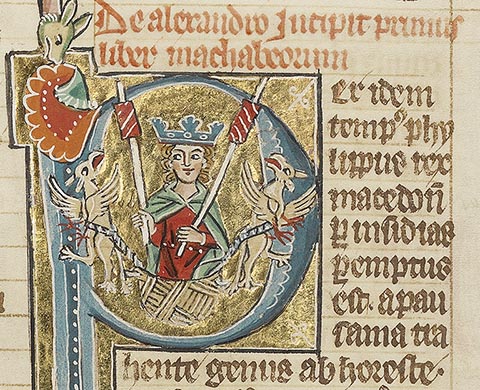 De alexandro Incipit primus
liber machabeorum
Per idem
tempꝰ phy
lippus rex
macedon̄
ꝑ insidias
ꝑemptus
est. a pau
sania tra
hente genus ab horeste.